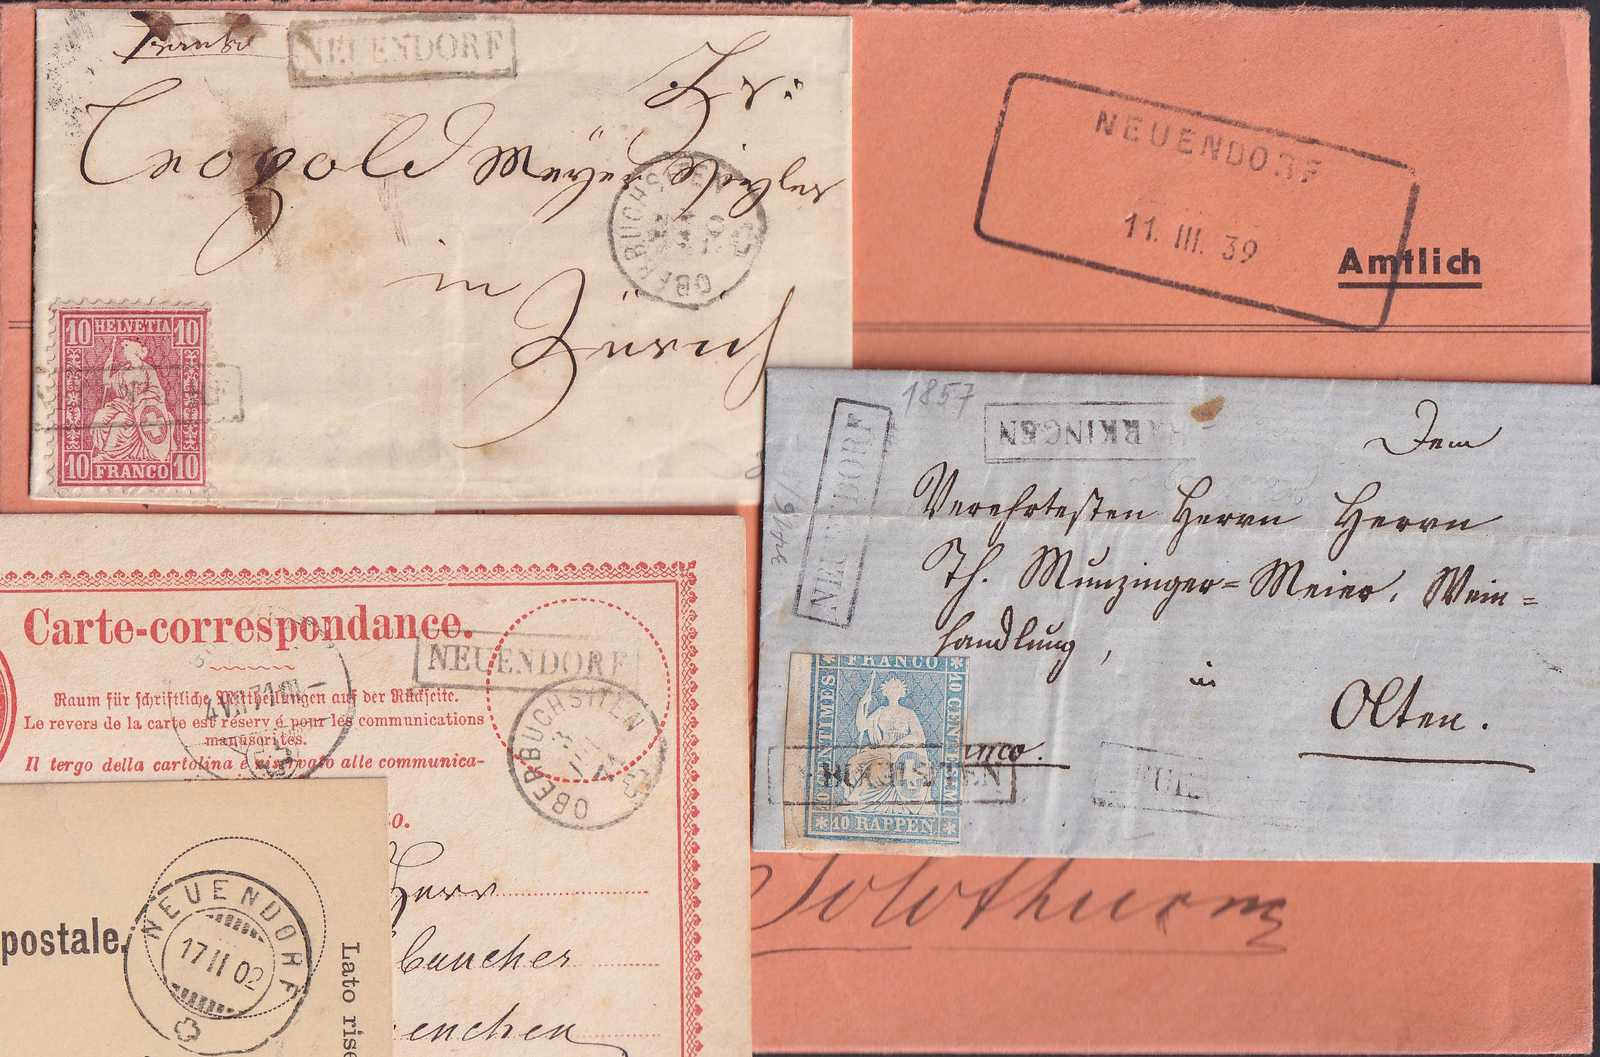 Franko
NEUENDORF
Hr:
Leopold Meyer Ziegler
in
Zürich
OBERBUCHSITEN
10 HELVETIA 10
10 FRANCO 10
NEUENDORF
11. III. 39
Amtlich
1857
NEUENDORF
HÄRKINGEN
Dem
Verehrtesten Herrn Herrn
Th. Munzinger=Meier, Wein=
handlung,
in
Olten.
FRANCO
10 CENTIMES
10 CENTESIMI
10 RAPPEN
BUCHSITEN
Solothurn
Carte-correspondance.
NEUENDORF
Raum für schriftliche Mittheilungen auf der Rückseite.
Le revers de la carte est réservé pour les communications
manuscrites.
Il tergo della cartolina è riservato alle communica-
OBERBUCHSITEN
Herr
enchen
postale.
NEUENDORF
17 II 02
Lato rise